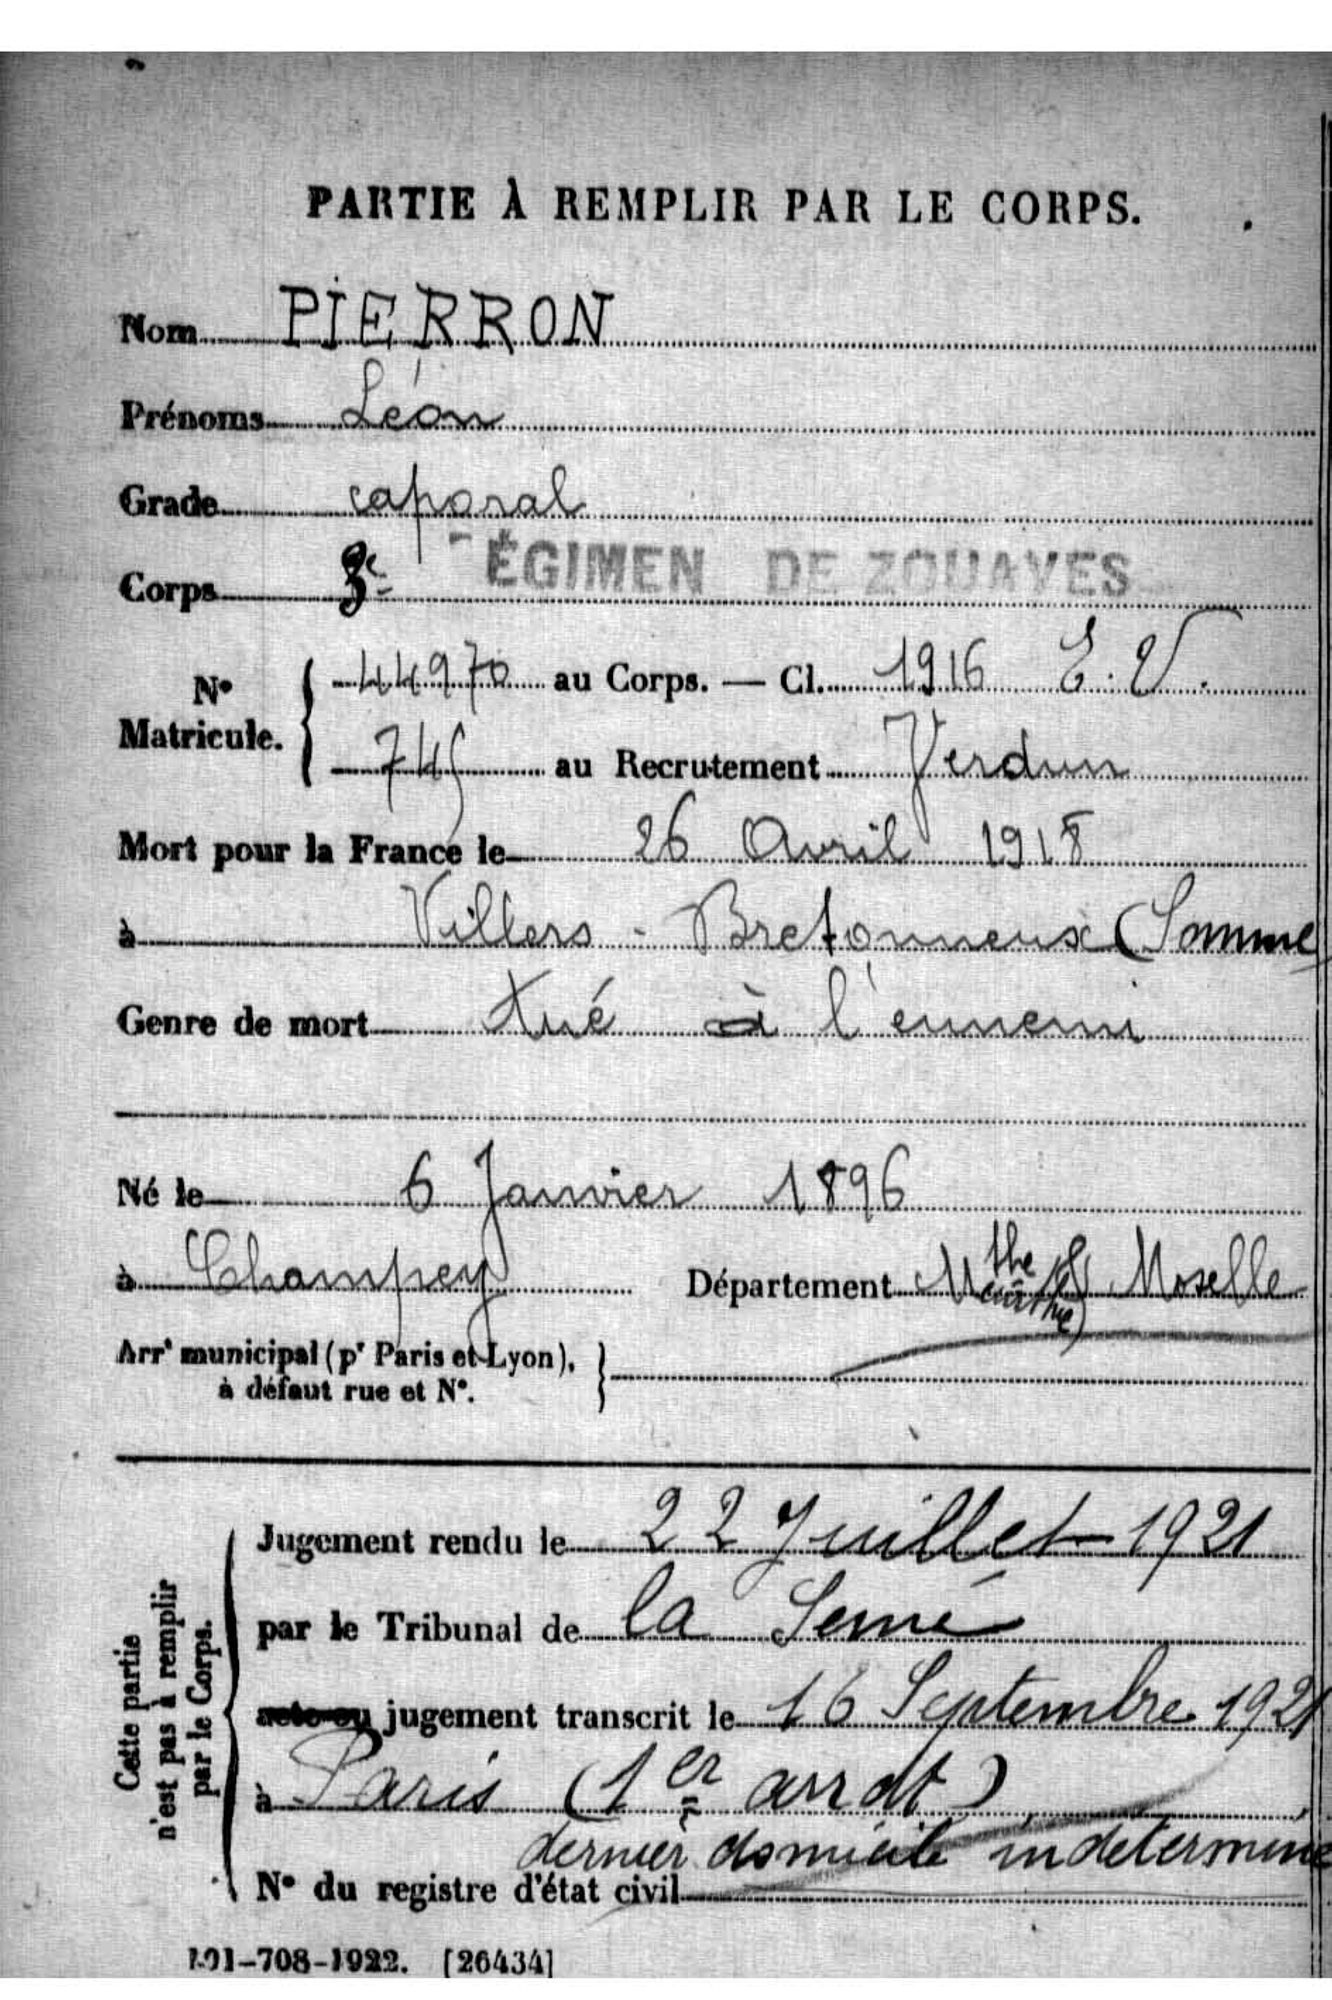 PARTIE À REMPLIR PAR LE CORPS.
Nom PIERRON
Prénoms Léon
Grade caporal
Corps 3e ÉGIMEN DE ZOUAVES
N° Matricule. 44970 au Corps. — Cl. 1916 E. V.
745 au Recrutement Verdun
Mort pour la France le 26 Avril 1918
à Villers - Bretonneux (Somme
Genre de mort tué à l'ennemi
Né le 6 Janvier 1896
à Champey Département Mthe & Moselle
(Meurthe)
Arrt municipal (pr Paris et Lyon),
à défaut rue et N°.
Cette partie
n'est pas à remplir
par le Corps.
Jugement rendu le 22 Juillet 1921
par le Tribunal de la Seine
acte ou jugement transcrit le 16 Septembre 1921
à Paris (1er arrdt)
dernier domicile indéterminé
N° du registre d'état civil
101-708-1922. [26434]